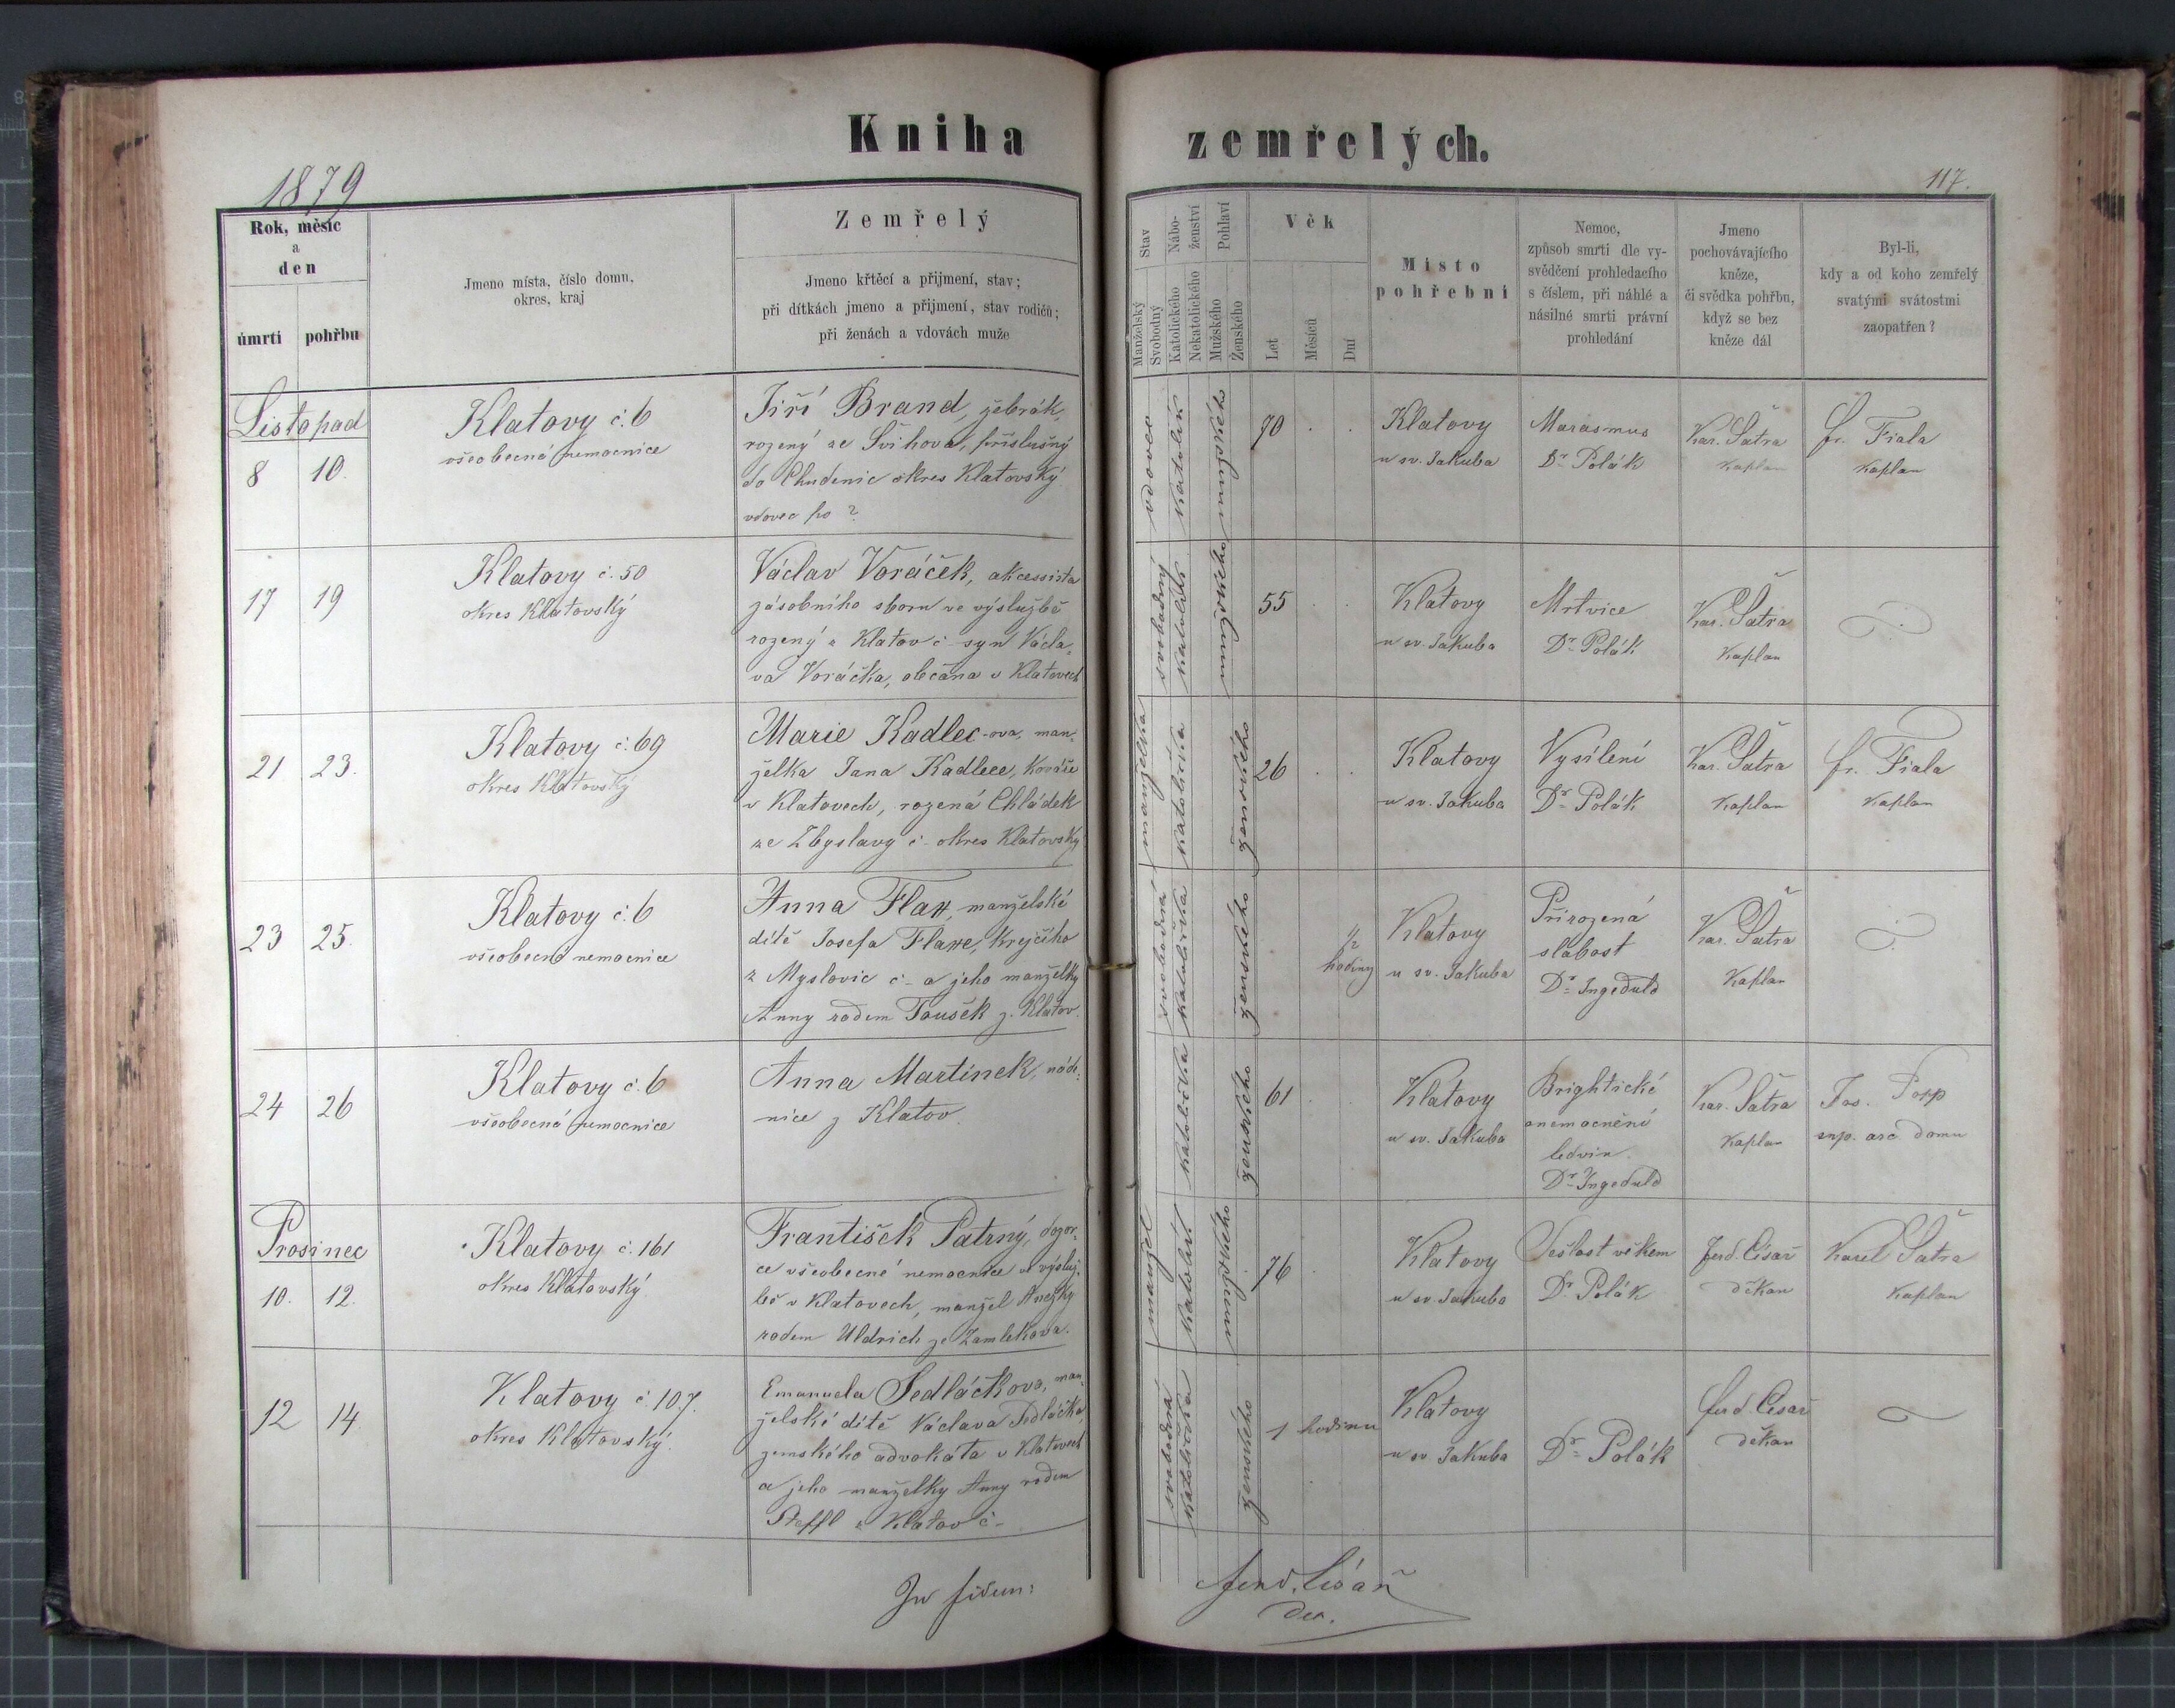 Kniha zemřelých.
1879
117.
Rok, měsíc
a
den
úmrtí pohřbu
Jmeno místa, číslo domu,
okres, kraj
Zemřelý
Jmeno křtěcí a přijmení, stav;
při dítkách jmeno a přijmení, stav rodičů;
při ženách a vdovách muže
Stav
Manželský
Svobodný
Nábo-
ženství
Katolického
Nekatolického
Pohlaví
Mužského
Ženského
Věk
Let
Měsíců
Dní
Místo
pohřební
Nemoc,
způsob smrti dle vy-
svědčení prohledacího
s číslem, při náhlé a
násilné smrti právní
prohledání
Jmeno
pochovávajícího
kněze,
či svědka pohřbu,
když se bez
kněze dál
Byl-li,
kdy a od koho zemřelý
svatými svátostmi
zaopatřen?
Listopad
8 10.
Klatovy č. 6
všeobecná nemocnice
Jiří Brand, žebrák,
rozený ze Švihova, příslušný
do Chudenic okres Klatovský
vdovec po ?
vdovec
katolík
mužského
70 . .
Klatovy
u sv. Jakuba
Marasmus
Dr. Polák
Kar. Šatra
Kaplan
fr. Fiala
Kaplan
17 19
Klatovy č. 50
okres Klatovský
Václav Voráček, akcessista
zásobního sboru ve výslužbě
rozený z Klatov č - syn Václa-
va Voráčka, občana v Klatovech
svobodný
katolík
mužského
55 . .
Klatovy
u sv. Jakuba
Mrtvice
Dr. Polák
Kar. Šatra
Kaplan
21 23.
Klatovy č. 69
okres Klatovský
Marie Kadlec-ova, man-
želka Jana Kadlece, Kováře
v Klatovech, rozená Chládek
ze Zbyslavy č - okres Klatovský
manželka
katolička
ženského
26 . .
Klatovy
u sv. Jakuba
Vysílení
Dr. Polák
Kar. Šatra
Kaplan
fr. Fiala
Kaplan
23 25.
Klatovy č. 6
všeobecná nemocnice
Anna manželské
dítě Josefa Krejčího
z Myslovic č - a jeho manželky
Anny rodem Toušek z Klatov.
svobodná
katolička
ženského
1/2
hodiny
Klatovy
u sv. Jakuba
Přirozená
slabost
Dr. Ingeduld
Kar. Šatra
Kaplan
24 26
Klatovy č. 6
všeobecná nemocnice
Anna Martinek, nád-
nice z Klatov.
katolička
ženského
61 . .
Klatovy
u sv. Jakuba
Brightické
onemocnění
ledvin.
Dr. Ingeduld
Kar. Šatra
Kaplan
Jos. Popp
domu
Prosinec
10. 12.
Klatovy č. 161
okres Klatovský
František Patrný, dozor-
ce všeobecné nemocnice ve výsluž-
bě v Klatovech, manžel Anežky
rodem Uldrich ze Zamlekova.
manžel
katolík
mužského
76 .
Klatovy
u sv. Jakuba
Sešlost věkem
Dr. Polák
Ferd. Císař
děkan
Karel Šatra
Kaplan
12 14.
Klatovy č. 107.
okres Klatovský.
Emanuela Sedláčkova, man-
želské dítě Václava Sedláčka,
zemského advokáta v Klatovech
a jeho manželky Anny rodem
Steffl z Klatov č -
svobodná
katolička
ženského
1 hodinu
Klatovy
u sv. Jakuba
Dr. Polák
ferd. Císař
děkan
In fidem:
ferd. Císař
děk.